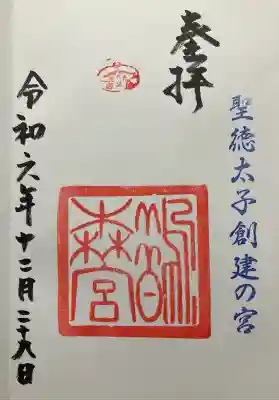 聖徳太子創建の宮
奉拝
鵲
森宮
令和六年十二月二十九日